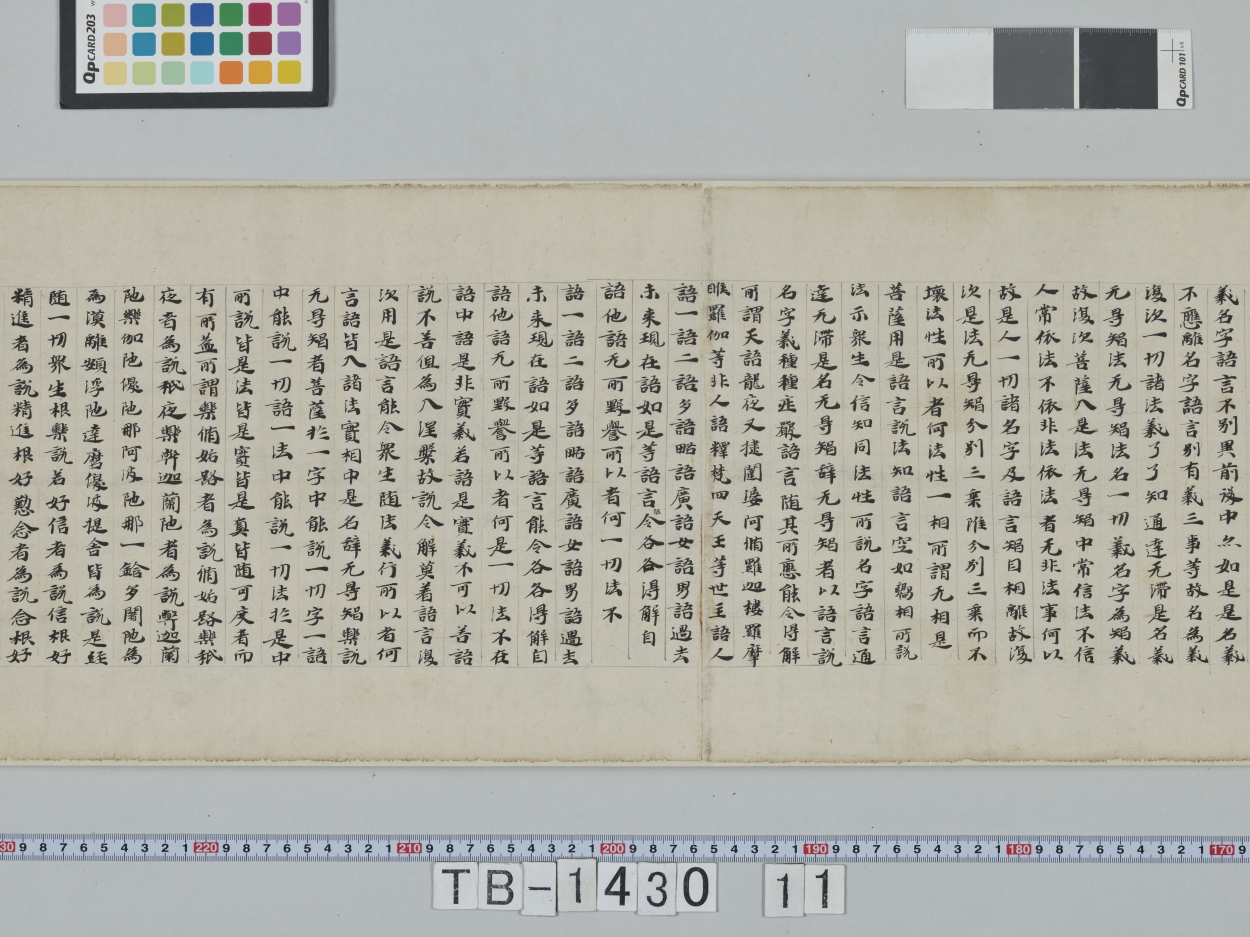 義名字語言不別異前後中亦如是是名義
不應離名字語言別有義三事等故名為義
復次一切諸法義了了知通達无滯是名義
无㝵智法无㝵智法名一切義名字為智義
故復次菩薩入是法无㝵智中常信法不信
人常依法不依非法依法者无非法事何以
故是人一切諸名字及語言智自相離故復
次是法无㝵智分別三乗雖分別三乗而不
壞法性可以者何法性一相所謂无相是
菩薩用是語言說法知語言空如嚮相可說
法示衆生令信知同法性所說名字語言通
達无滯是名无㝵智辞无㝵智者以語言說
名字義種種疪嚴語言随其所應能令得解
所謂天語龍夜叉揵闥婆阿脩羅迦樓羅摩
睺羅伽等非人語釋梵四天王等世主語人
語一語二語多語略語廣語女語男語過去
未来現在語如是等語言能令各各得解自
語他語无所毀譽可以者何一切法不
語一語二語多語略語廣語女語男語過去
未来現在語如是等語言能令各各得解自
語他語无所毀譽可以者何是一切法不在
語中語是非實義若語是實義不可以善語
說不善但為入涅槃故說令解莫着語言復
次用是語言能令衆生随法義行所以者何
言語皆入諸法實相中是名辞无㝵智樂說
无㝵智者菩薩於一字中能說一切字一語
中能說一切語一法中能說一切法於是中
所說皆是法皆是實皆是真皆随可度者而
有所益所謂樂脩妬路者為說脩妬路樂秖
夜者為說秖夜樂弊迦蘭陁者為說弊迦蘭
陁樂伽陁優陁那阿波陁那一輸多闍陁為
為漠離頞浮陁達磨優波提舍皆為說是経
随一切衆生根樂說若好信者為說信根好
精進者為說精進根好懃念者為說念根好
QpCARD 203
QpCARD 101 v4
30 9 8 7 6 5 4 3 2 1 220 9 8 7 6 5 4 3 2 1 210 9 8 7 6 5 4 3 2 1 200 9 8 7 6 5 4 3 2 1 190 9 8 7 6 5 4 3 2 1 180 9 8 7 6 5 4 3 2 1 170 9
TB-1430 11